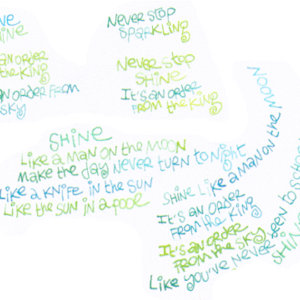 NEVER STOP
SPARKLING
NEVER STOP
SHINE
IT'S AN ORDER
FROM THE KING
AN ORDER
THE KING
AN ORDER FROM
SKY
SHINE
LIKE A MAN ON THE MOON
MAKE THE DAY NEVER TURN TO NIGHT
LIKE A KNIFE IN THE SUN
LIKE THE SUN IN A POOL
SHINE LIKE A MAN ON THE MOON
IT'S AN ORDER
FROM THE KING
IT'S AN ORDER
FROM THE SKY
LIKE YOU'VE NEVER BEEN TO
SHINE